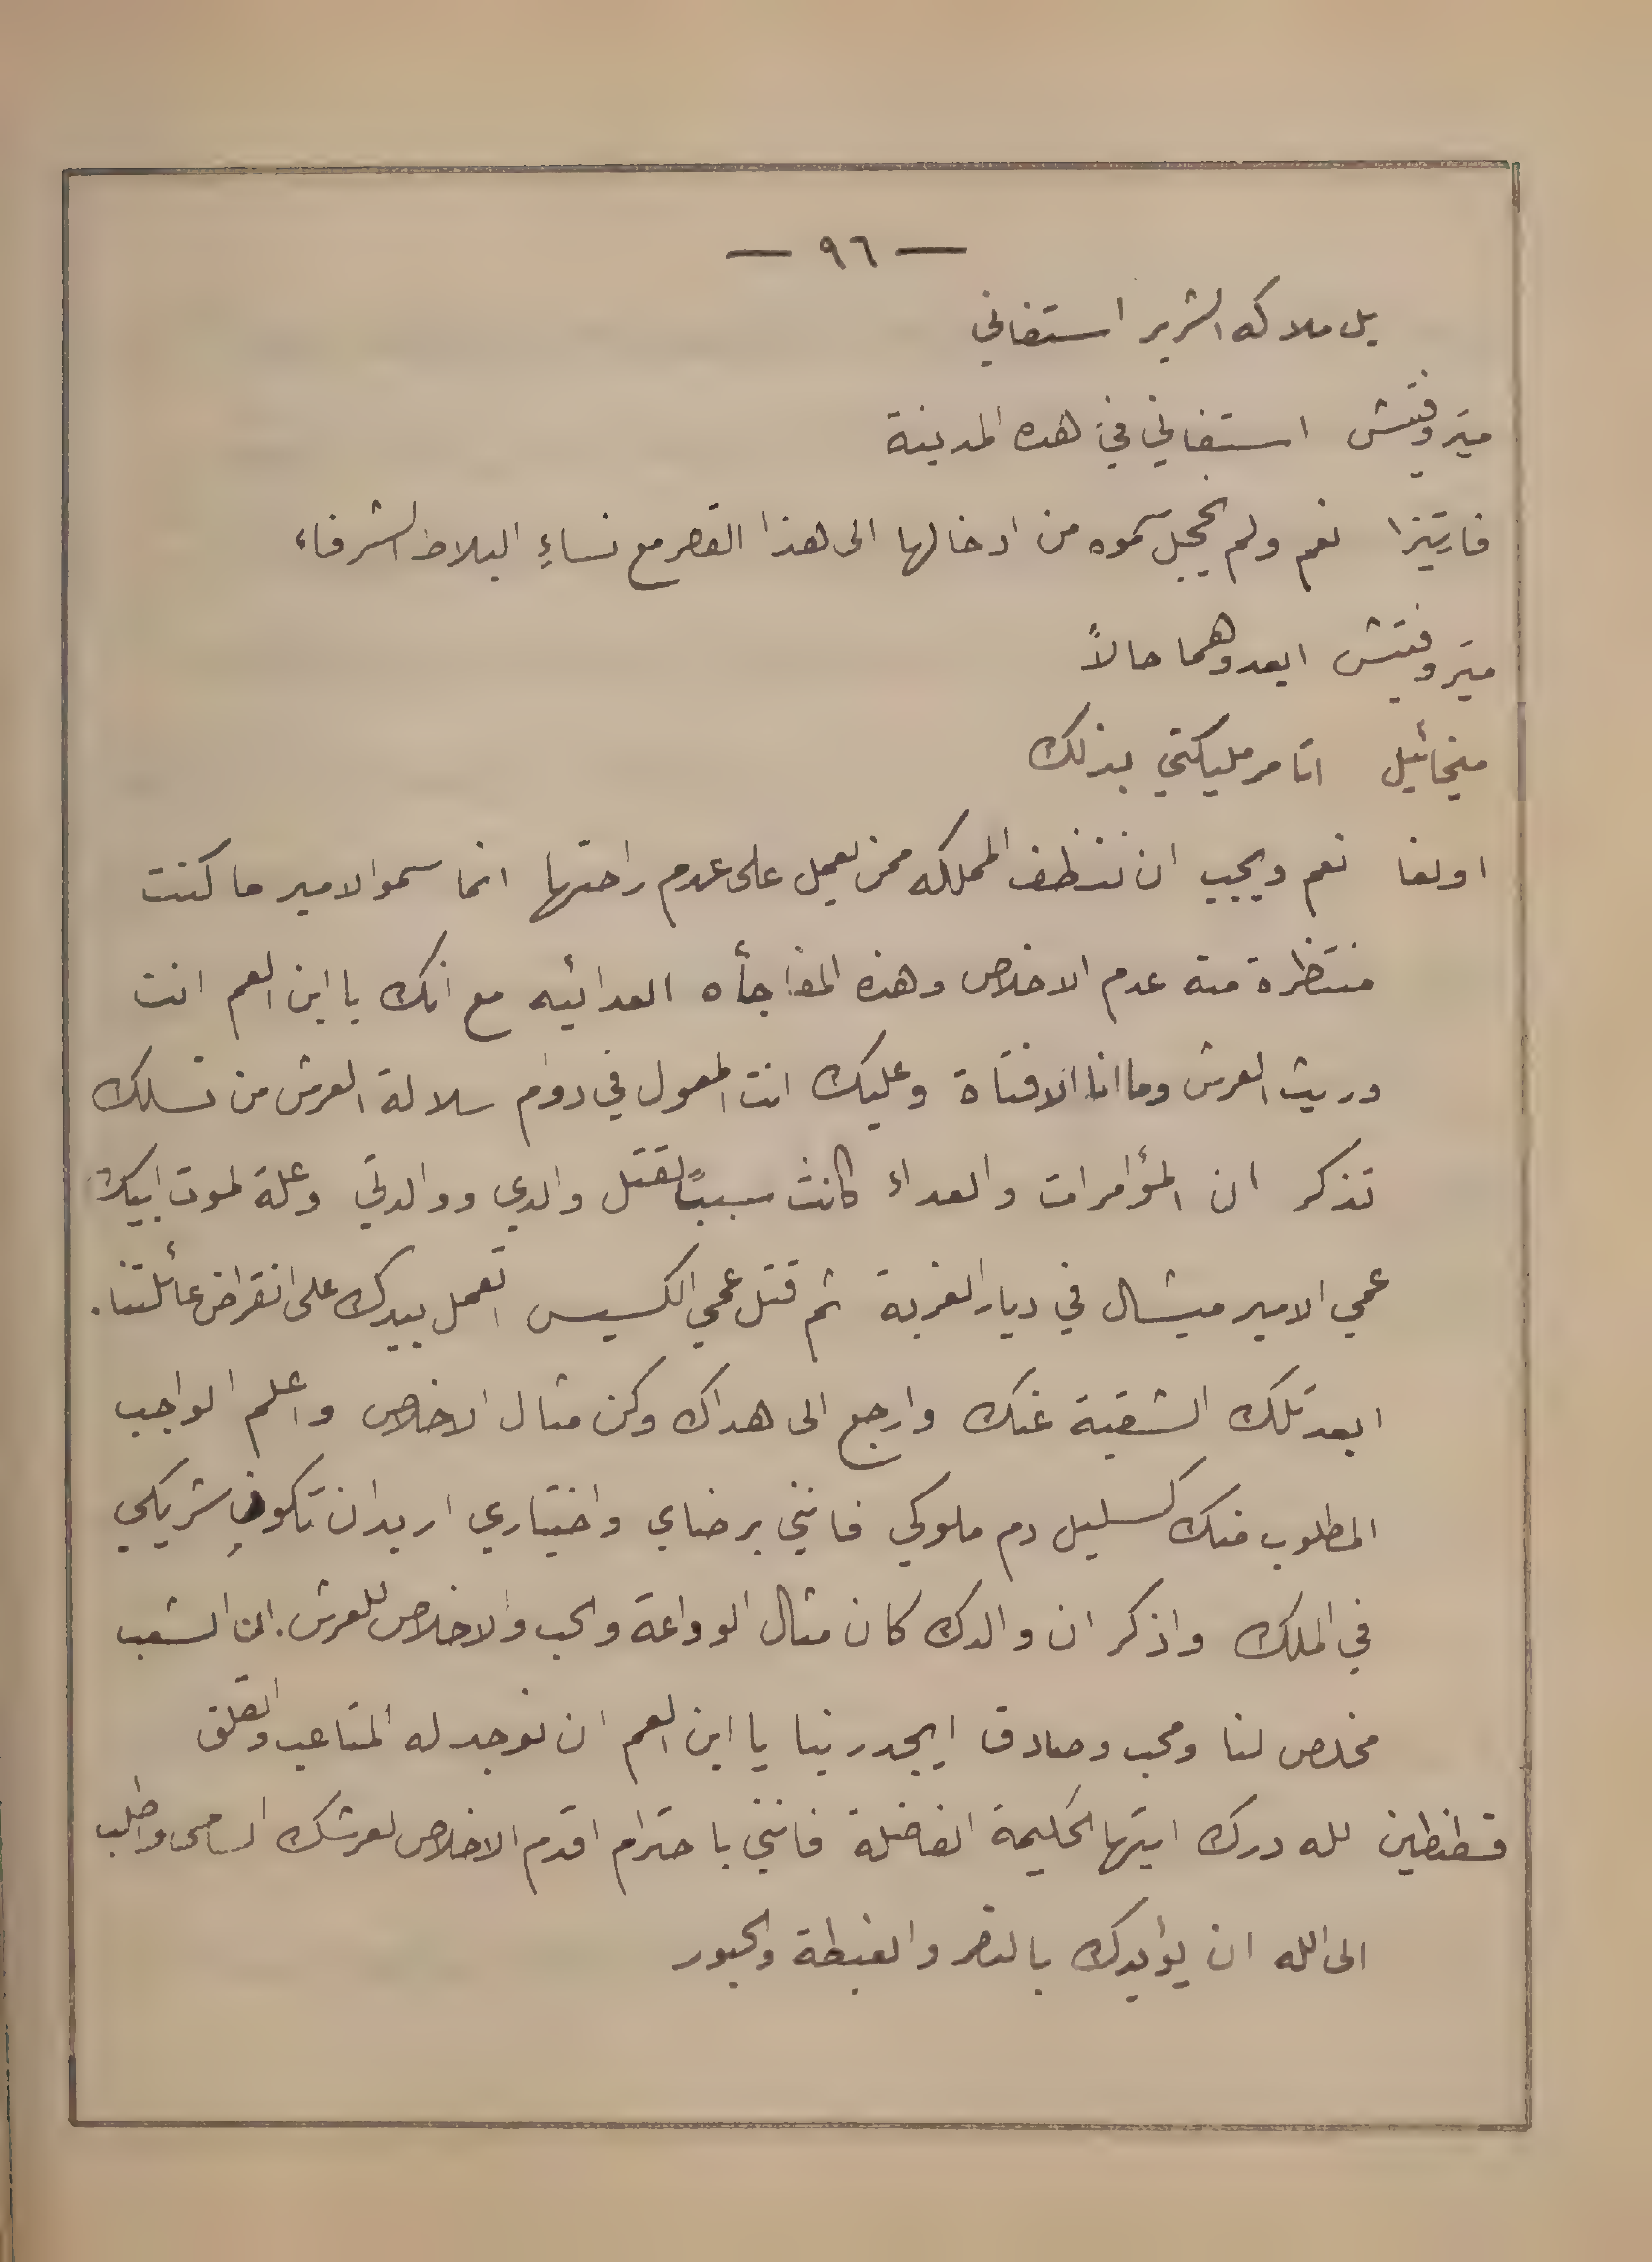 — ٩٦ —
بل ملاكه الشرير استفاني
ميتروفتش استفاني في هذه المدينة
فارتيزا نعم ولم يخجل سموه من ادخالها الى هذا القصر مع نساءِ البلاط الشرفاء
ميتروفتش ابعدوهما حالاً
ميخائيل اتامر مليكتي بذلك
اولغا نعم ويجب ان ننظف المملكه ممن يعمل على عدم راحتها انما سمو الامير ما كنت
منتظرة منه عدم الاخلاص وهذه المفاجأه العدائيه مع انك يا ابن العم انت
وريث العرش وما انا الا فتاة وعليك انت المعول في دوام سلالة العرش من نسلك
تذكر ان المؤامرات والعداء كانت سببًا لقتل والدي ووالدتي وعلة لموت ابيك
عمي الامير ميشال في ديار الغربة ثم قتل عمي الكسيس اتعمل بيدك على انقراض عائلتنا.
ابعد تلك الشقية عنك وارجع الى هداك وكن مثال الاخلاص واعلم الواجب
المطلوب منك كسليل دم ملوكي فانني برضاي واختياري اريد ان تكون شريكي
في الملك واذكر ان والدك كان مثال الوداعة والحب والاخلاص للعرش. ان الشعب
مخلص لنا ومحب وصادق ايجدر بنا يا ابن العم ان نوجد له المتاعب والقلق
قسطنطين لله درك ايتها الحكيمة الفاضلة فانني باحترام اقدم الاخلاص لعرشك السامي واطلب
الى الله ان يؤيدك بالنصر والغبطة والحبور